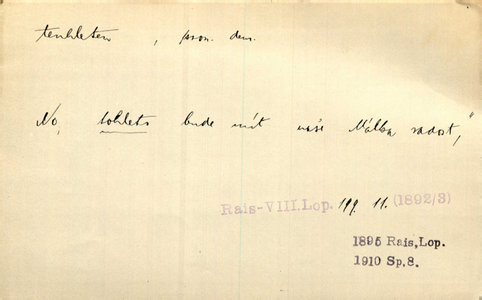 tenhleten, pron. dem.
No, tohleto bude mít naše Málka radost,"
Rais-VIII.Lop. 199. 11. (1892/3)
1895 Rais, Lop.
1910 Sp.8.